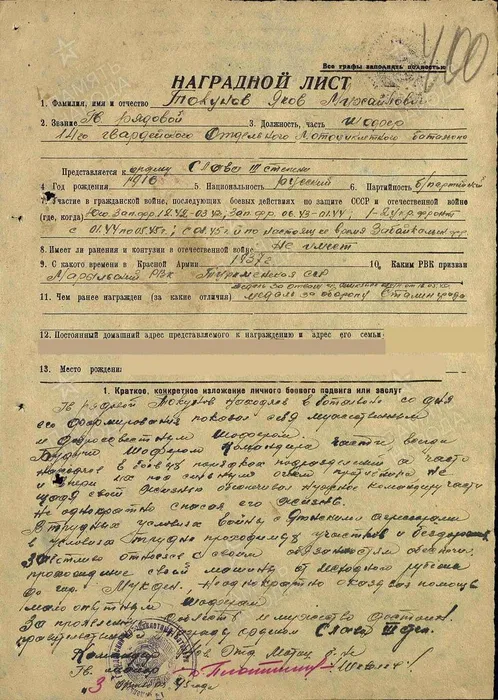 400
Все графы заполнять полностью
НАГРАДНОЙ ЛИСТ
1. Фамилия, имя и отчество Токунов Яков Михайлович
2. Звание Гв. Рядовой 3. Должность, часть Шофер
14го гвардейского Отдельного Мотоциклетного батальона
Представляется к ордену Слава III степени
4 Год рождения 1916 5. Национальность русский 6. Партийность б/партийный
7. Участие в гражданской войне, последующих боевых действиях по защите СССР и отечественной войне
(где, когда)
с 01.44 по 05.45г.; по настоящее время Забайкальск. фр.
8. Имеет ли ранения и контузии в отечественной войне Не имеет
9. С какого времени в Красной Армии 1937г 10. Каким РВК призван
РВК Туркменская ССР
11. Чем ранее награжден (за какие отличия) медаль за отвагу
медаль за оборону Сталинграда
12. Постоянный домашний адрес представляемого к награждению и адрес его семьи
13. Место рождения
1. Краткое, конкретное изложение личного боевого подвига или заслуг
Гв. рядовой Токунов находясь в батальоне со дня
его формирования показал себя мужественным
и добросовестным шофером.
Будучи шофером Командира части, всегда
находился в боевых подразделений а часто
и под сильным огнем противника не
щадя своей жизнью обеспечивал командиру части
Не однократно спасая его жизнь.
В трудных условиях войны с Японскими агрессорами
в условиях трудно проходимых участков и бездорожья
отнесся к своим обязанностям обеспечив
прохождение своей машины от исходного рубежа
до гор. Мукден, неоднократно оказывая помощь
малоопытным шоферам
За мужество достоин
правительственной награды орденом Слава III степ.
Командир Отд. Мотоц. б-на
Гв. майор
"3" 45 года